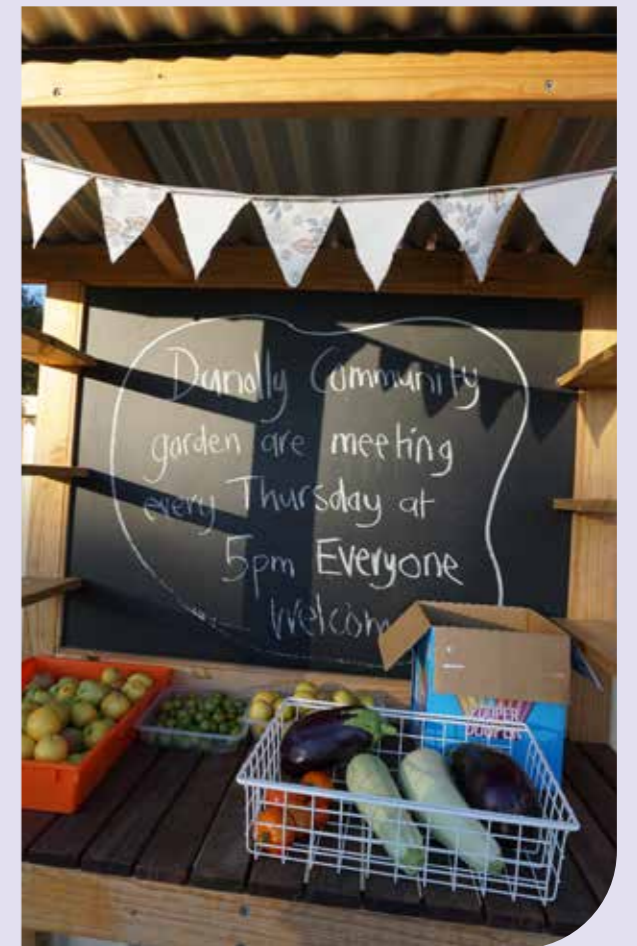 Dunally Community
garden are meeting
every Thursday at
5pm Everyone
Welcom
ZOOPER